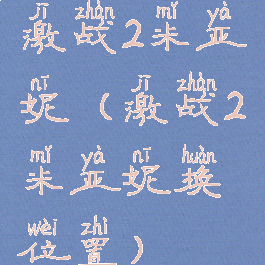 jī zhàn mǐ yà
激战2米亚
nī jī zhàn
妮(激战2
mǐ yà nī huàn
米亚妮换
wèi zhì
位置)